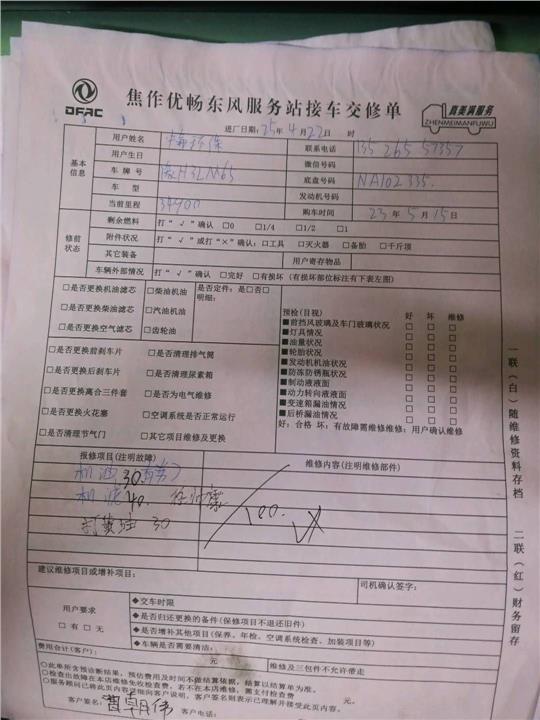 DFAC
焦作优畅东风服务站接车交修单
真美满服务
ZHENMEIMANFUWU
进厂日期: 25年 4月 22日 时
基本信息
用户姓名
联系电话
用户生日 微信号码
车牌号 底盘号码 NA102335.
车型 发动机号码
当前里程 34900 购车时间 23年 5月 15日
修前状态
剩余燃料 打“√”确认 □0 □1/4 □1/2 □1
附件状况 打“√”或打“×”确认:□工具 □灭火器 □备胎 □千斤顶
其它装备 用户寄存物品
车辆外部情况 打“√”确认 □完好 □有损坏(有损坏部位标注有下表左图)
□是否更换机油滤芯 □柴油机油 是否定件:是□否□
□是否更换柴油滤芯 □汽油机油 明细:
□是否更换空气滤芯 □齿轮油
□是否更换前刹车片 □是否清理排气筒
□是否更换后刹车片 □是否清理尿素箱
□是否更换离合三件套 □是否为电气维修
□是否更换火花塞 □空调系统是否正常运行
□是否清理节气门 □其它项目维修及更换
预检(目视) 好 坏 维修
■前挡风玻璃及车门玻璃状况 □ □ □
■灯具情况 □ □ □
■油量状况 □ □ □
■轮胎状况 □ □ □
■发动机机油状况 □ □ □
■防冻防锈瓶状况 □ □ □
■制动液液面 □ □ □
■动力转向液液面 □ □ □
■变速箱漏油情况 □ □ □
■后桥漏油情况 □ □ □
好:合格 坏:有故障需维修维修:用户确认维修
报修项目(注明故障) 维修内容(注明维修部件)
机油 30
机滤 40
打黄油 30
100.
建议维修项目或增补项目:
司机确认签字:
用户要求
□有 □无
◆交车时限
◆是否归还更换的备件(保修项目不退还旧件)
◆是否增补其他项目(保养、年检、空调系统检查、加装项目等)
◆车辆是否需要清洁:
费用合计(客户): 元 维修及三包件不允许带走
○此单所含预诊断结果,预估费用及时间不做结算依据,结算以结算单为准。
○检查出故障在本店维修免收检查费,若不在本店维修,需支付检查费 元
○服务顾问已将此页内容仔细向客户说明,客户签名则表示已理解并接受此页内容。
客户签名: 曹朝伟 客户电话:
一联(白)随维修资料存档
二联(红)财务留存